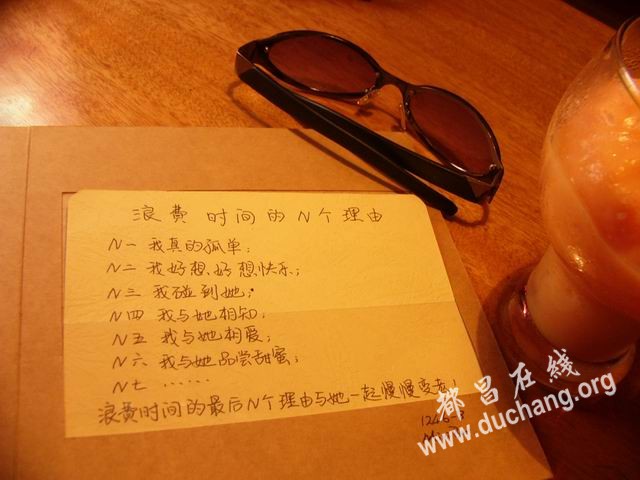 浪费时间的N个理由
N一 我真的孤单;
N二 我好想、好想快乐;
N三 我碰到她;
N四 我与她相知;
N五 我与她相爱;
N六 我与她品尝甜蜜;
N七 ……
浪费时间的最后N个理由与她一起慢慢变老!
都昌在线
www.duchang.org